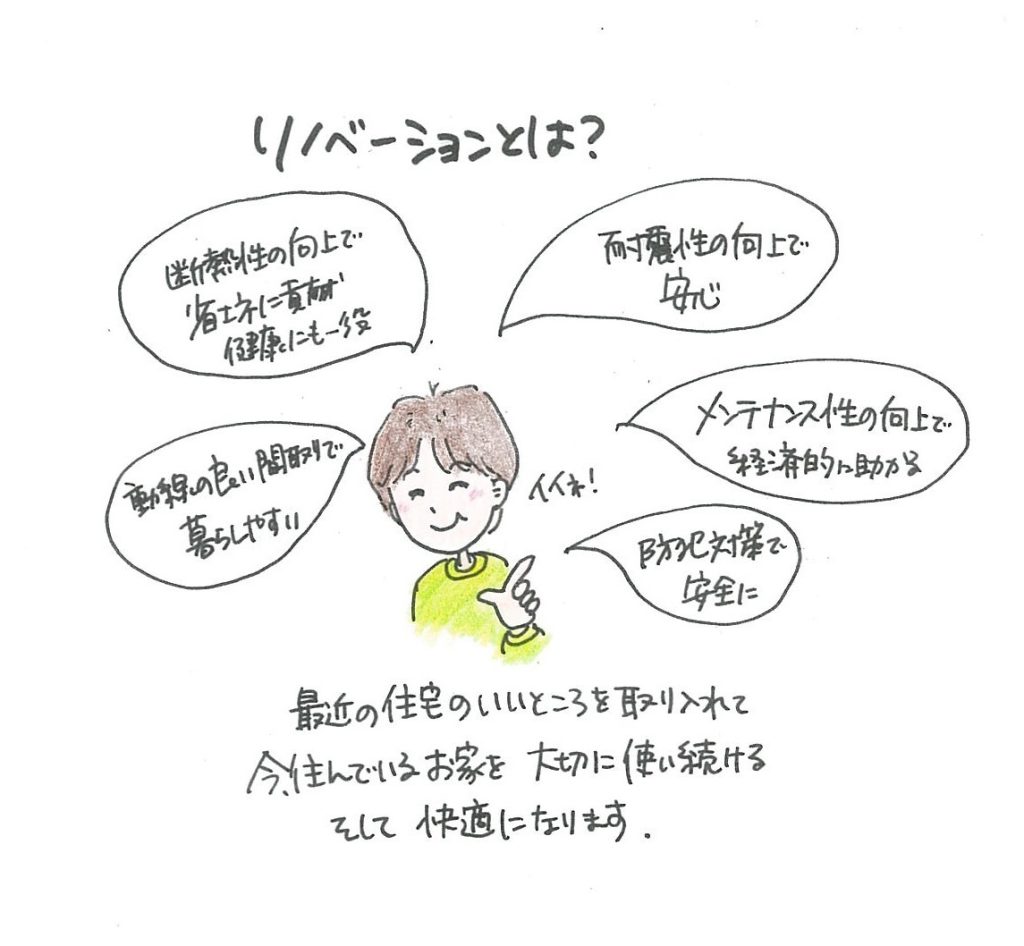 リノベーションとは?
断熱性の向上で
省エネに貢献
健康にも一役
耐震性の向上で
安心
メンテナンス性の向上で
経済的に助かる
動線の良い間取りで
暮らしやすい
イイネ!
防犯対策で
安全に
最近の住宅のいいところを取り入れて
今、住んでいるお家を 大切に使い続ける
そして 快適になります.